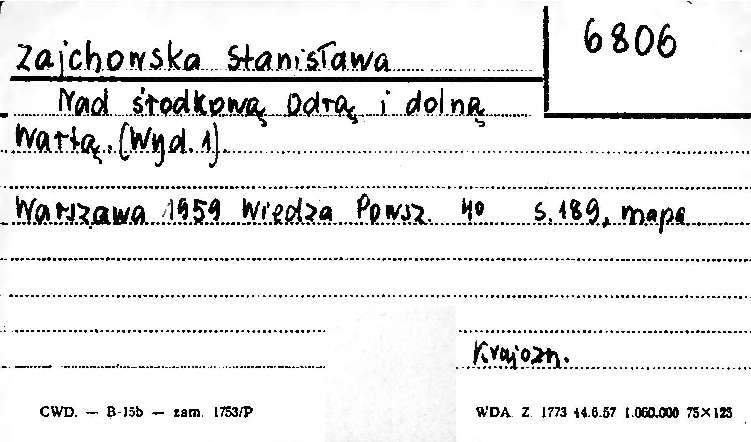 6806
Zajchowska Stanisława
Nad środkową Odrą i dolną
Wartą. (Wyd. 1).
Warszawa 1959 Wiedza Powsz. 4º s. 189, mapa
Krajozn.
CWD. — B-15b — zam. 1753/P
WDA. Z. 1773 14.6.57 1.060.000 75×125